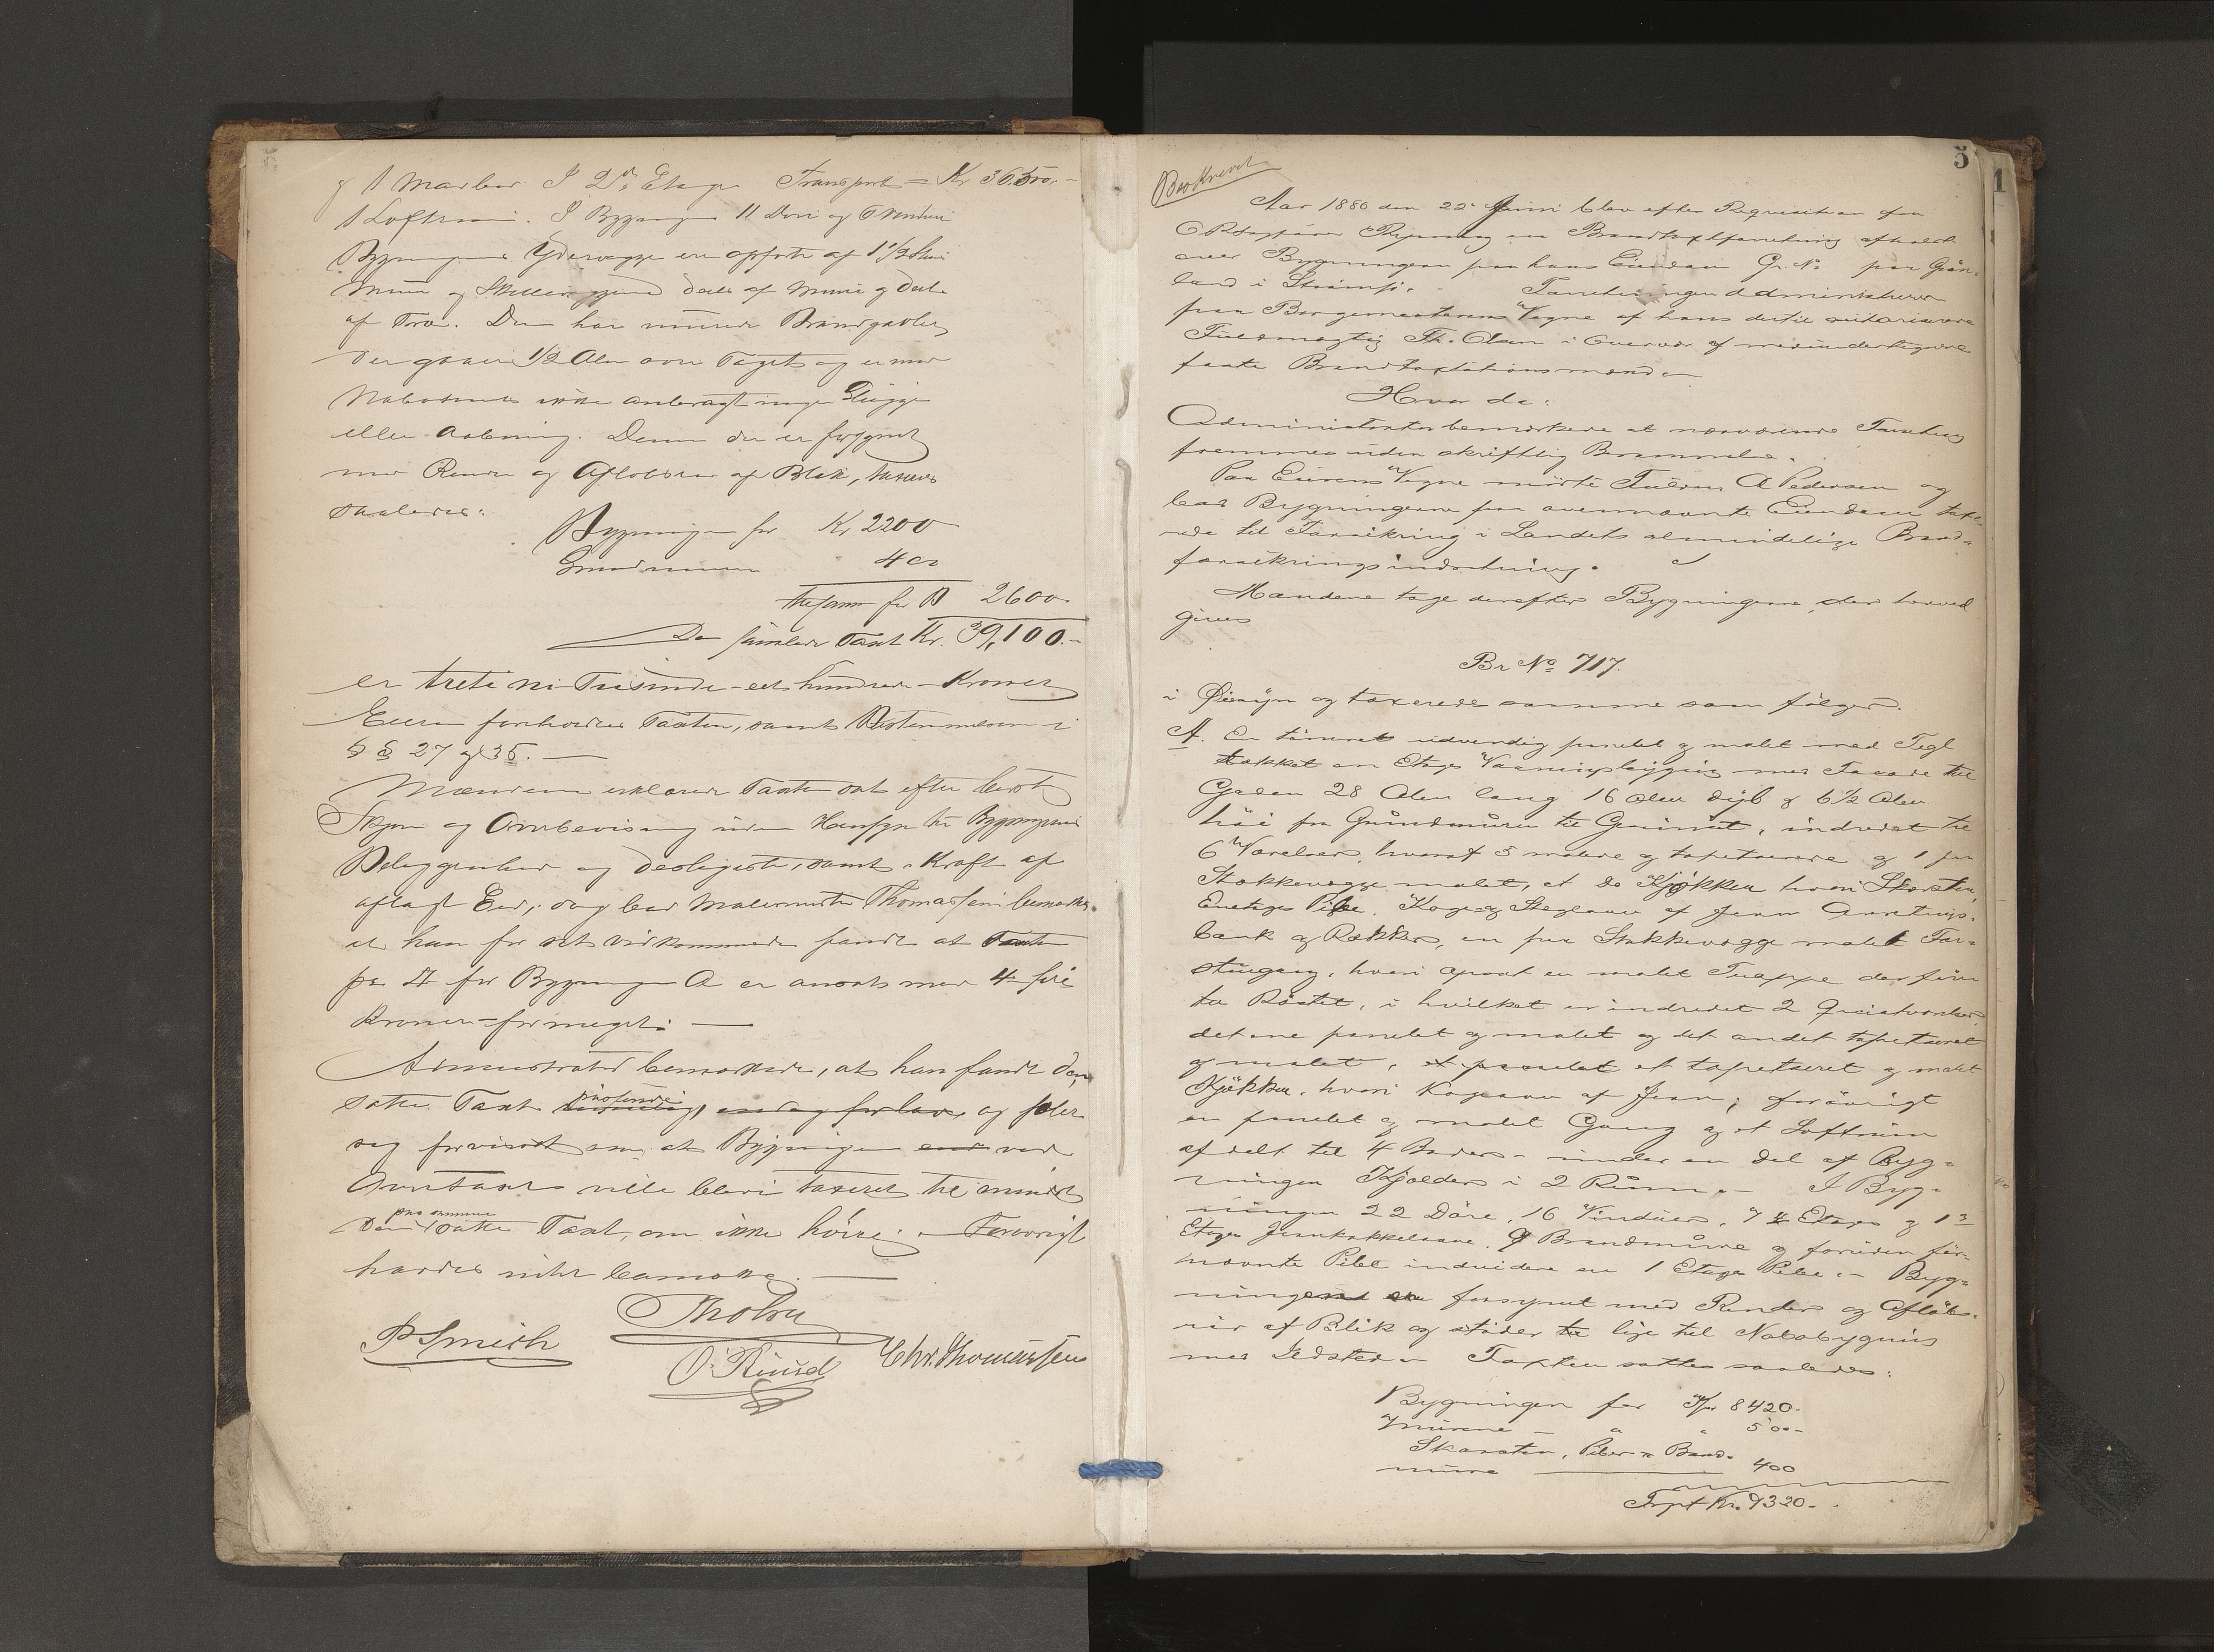 & 1 Madbod. I 2den Etage Transport = Kr 36.500.-
1 Loftrum. I Bygningen 11 Döre og 6 Vinduer
Bygningens Ydervægge ere opförte af 1 1/2 Stens
Muur og Skillevæggene deels af Muur og deels
af Træ. Den har murede Brandgavler,
der gaaer 1/2 Alen over Taget og er mod
Naboerne ikke anbragt nogen Glugge
eller Aabning. Denne der er forsynet
med Render og Aflöbsrör af Blik, taxeres
saaledes:
Bygningen for Kr 2200
Grundmuren 400
tilsammen for D 2600
Den samlede Taxt Kr. 39,100.-
er treti ni Tusinde - et hundrede - Kroner
Eieren foreholdtes Taxten, samt Bestemmelserne i
§ § 27 og 35. —
Mændene erklærede Taxten sat efter bedste
Skjön og Overbevisning uden Hensyn til Bygningernes
Beliggenhed og deslignende, samt i Kraft af
aflagt Eed; dog bad Malermester Thomassen bemærket
at han for sit Vedkommende fandt at Taxten
for Bygningen A er ansat med 4 fire
Kroner formeget. —
Administrator bemærkede, at han fandt den
satte Taxt og föler
sig forvisset om, at Bygningen ved
Omtaxt ville blevet taxeret til mindst
den paa samme satte Taxt, om ikke höiere. - Forövrigt
havdes intet bemærke. —
Tholsen
P Smith O. Ruud Chr. Thomassen
5
1
Beskrevet
Aar 1886 den 22de Juni blev efter Requisition fra
en Brandtaxtforretning afholdt
over Bygningerne paa hans Eiendom Gr. No paa Grön-
land i Strömsö. Forretningen administreredes
paa Borgermesterens Vegne af hans dertil autoriserede
Fuldmægtig Th. Olsen i Overvær af medundertegnede
faste Brandtaxtationsmænd —
Hvor da:
Administrator bemærkede at nærværende Forretning
fremmes uden skriftlig Berammelse.
Paa Eierens Vegne mödte Fuldm. A Pedersen og
bad Bygningerne paa ovennævnte Eiendom taxe-
rede til Forsikring i Landets almindelige Brand-
forsikringsindretning.
Mændene toge derefter Bygningerne, der herved
gives
Br No 717.
i Öiesyn og taxerede samme som fölger.
A. En tömret udvendig panelet og malet med Tegl
takket en Etages Vaaningsbygning med Facade til
Gaden 28 Alen lang 16 Alen dyb & 6 1/2 Alen
höi fra Grundmuren til Gesimset, indredet til
6 Værelser, hvoraf 5 malede og tapetserede og 1 paa
Stokkevægge malet, et do Kjökken hvori Skorsten,
Eetages Pibe. Koge- og Stegeovn af Jern Anretnings-
bænk og Rækker, en paa Stokkevægge malet For-
stuegang, hvori opsat en malet Trappe der förer
til Röstet, i hvilket er indredet 2 Qvistværelser,
det ene panelet og malet og det andet tapetseret
og malet, et panelet et tapetseret og malet
Kjökken, hvori Kogeovn af Jern; forövrigt
en panelet og malet Gang og et Loftrum
afdelt til 4 Boder. - under en Del af Byg-
ningen Kjælder i 2 Rum. - I Byg-
ningen 22 Döre, 16 Vinduer, 7 Etages og 1 3
Etages Jernkakkelovne, 9 Brandmure og foruden för-
nævnte Pibe indvidere en 1 Etages Pibe. - Byg-
ningen er forsynet med Render og Aflöbs-
rör af Blik og stöder til lige til Nabobygning
med Ildsted. - Taxten sattes saaledes:
Bygningen for Kr 8420.-
Murene - " " 500 -
Skorsten, Piber & Brand-
mure 400
Trspt Kr. 9320.-